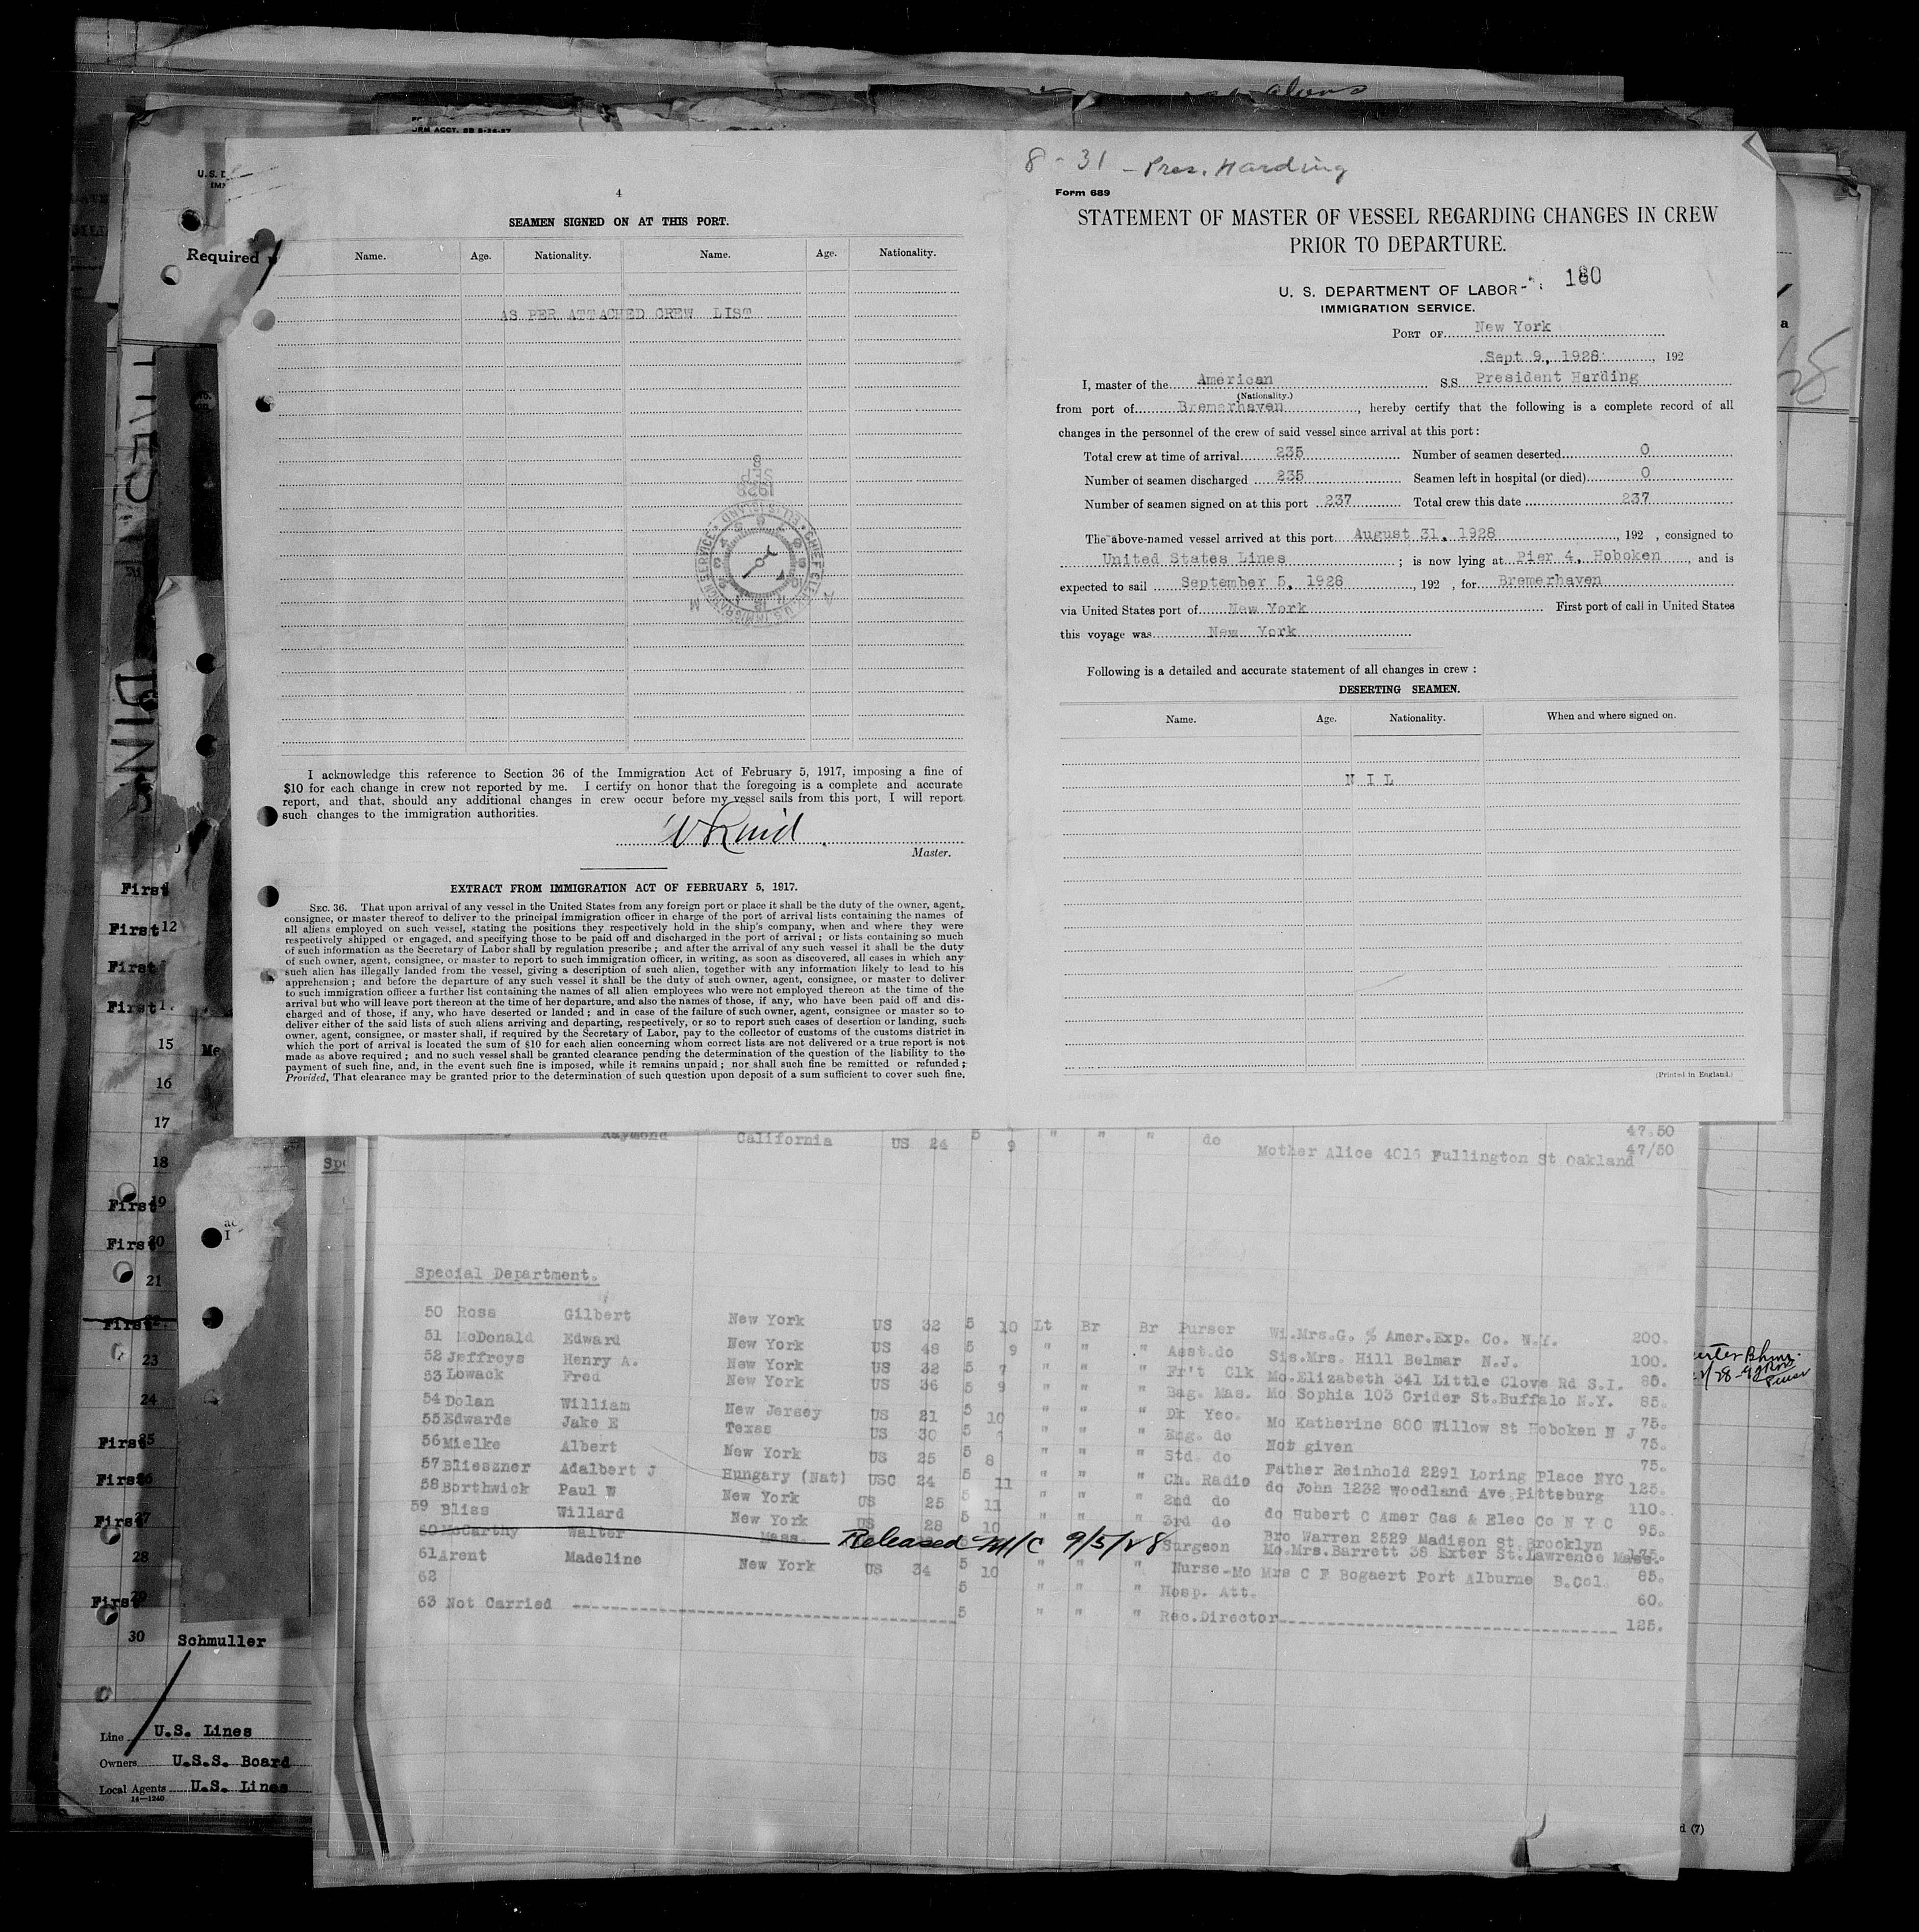 aliens
FORM ACCT. SB 2-26-27
4
SEAMEN SIGNED ON AT THIS PORT.
Name. Age. Nationality. Name. Age. Nationality.
AS PER ATTACHED CREW LIST
SEP
1928
CHIEF CLERK U.S. IMMIGRATION SERVICE ELLIS ISLAND
I acknowledge this reference to Section 36 of the Immigration Act of February 5, 1917, imposing a fine of
$10 for each change in crew not reported by me. I certify on honor that the foregoing is a complete and accurate
report, and that, should any additional changes in crew occur before my vessel sails from this port, I will report
such changes to the immigration authorities.
Master.
EXTRACT FROM IMMIGRATION ACT OF FEBRUARY 5, 1917.
SEC. 36. That upon arrival of any vessel in the United States from any foreign port or place it shall be the duty of the owner, agent,
consignee, or master thereof to deliver to the principal immigration officer in charge of the port of arrival lists containing the names of
all aliens employed on such vessel, stating the positions they respectively hold in the ship's company, when and where they were
respectively shipped or engaged, and specifying those to be paid off and discharged in the port of arrival; or lists containing so much
of such information as the Secretary of Labor shall by regulation prescribe; and after the arrival of any such vessel it shall be the duty
of such owner, agent, consignee, or master to report to such immigration officer, in writing, as soon as discovered, all cases in which any
such alien has illegally landed from the vessel, giving a description of such alien, together with any information likely to lead to his
apprehension; and before the departure of any such vessel it shall be the duty of such owner, agent, consignee, or master to deliver
to such immigration officer a further list containing the names of all alien employees who were not employed thereon at the time of the
arrival but who will leave port thereon at the time of her departure, and also the names of those, if any, who have been paid off and dis-
charged and of those, if any, who have deserted or landed; and in case of the failure of such owner, agent, consignee or master so to
deliver either of the said lists of such aliens arriving and departing, respectively, or so to report such cases of desertion or landing, such
owner, agent, consignee, or master shall, if required by the Secretary of Labor, pay to the collector of customs of the customs district in
which the port of arrival is located the sum of $10 for each alien concerning whom correct lists are not delivered or a true report is not
made as above required; and no such vessel shall be granted clearance pending the determination of the question of the liability to the
payment of such fine, and, in the event such fine is imposed, while it remains unpaid; nor shall such fine be remitted or refunded;
Provided, That clearance may be granted prior to the determination of such question upon deposit of a sum sufficient to cover such fine.
8 - 31 - Pres. Harding
Form 689
STATEMENT OF MASTER OF VESSEL REGARDING CHANGES IN CREW
PRIOR TO DEPARTURE.
U. S. DEPARTMENT OF LABOR 180
IMMIGRATION SERVICE.
PORT OF New York
Sept 9, 1928 , 192
I, master of the American S.S. President Harding
(Nationality.)
from port of Bremerhaven , hereby certify that the following is a complete record of all
changes in the personnel of the crew of said vessel since arrival at this port:
Total crew at time of arrival 235 Number of seamen deserted 0
Number of seamen discharged 235 Seamen left in hospital (or died) 0
Number of seamen signed on at this port 237 Total crew this date 237
The above-named vessel arrived at this port August 31, 1928 , 192 , consigned to
United States Lines ; is now lying at Pier 4, Hoboken , and is
expected to sail September 5, 1928 , 192 , for Bremerhaven
via United States port of New York First port of call in United States
this voyage was New York
Following is a detailed and accurate statement of all changes in crew:
DESERTING SEAMEN.
Name. Age. Nationality. When and where signed on.
N I L
(Printed in England.)
Raymond California US 24 5 9 " " " do 47.50
Mother Alice 4016 Fullington St Oakland 47/50
Special Department.
50 Ross Gilbert New York US 32 5 10 Lt Br Br Purser Wi.Mrs.G. % Amer.Exp. Co. N.Y. 200.
51 McDonald Edward New York US 48 5 9 " " " Asst.do Sis.Mrs. Hill Belmar N.J. 100.
52 Jeffreys Henry A. New York US 32 5 7 " " " Fr't Clk Mo.Elizabeth 341 Little Clove Rd S.I. 85.
53 Lowack Fred New York US 36 5 9 " " " Bag. Mas. Mo Sophia 103 Grider St.Buffalo N.Y. 85.
54 Dolan William New Jersey US 21 5 10 " " " Dk Yeo. Mo Katherine 800 Willow St Hoboken N J 75.
55 Edwards Jake E Texas US 30 5 " " " Eng. do Not given 75.
56 Mielke Albert New York US 25 5 8 " " " Std. do Father Reinhold 2291 Loring Place NYC 75.
57 Blieszner Adalbert J Hungary (Nat) USC 24 5 11 " " " Ch. Radio do John 1232 Woodland Ave Pittsburg 125.
58 Borthwick Paul W New York US 25 5 11 " " " 2nd do do Hubert C Amer Gas & Elec Co N Y C 110.
59 Bliss Willard New York US 28 5 10 " " " 3rd do Bro Warren 2529 Madison St Brooklyn 95.
60 McCarthy Walter Mass Released 9/5/28 Surgeon Mo.Mrs.Barrett 38 Exter St.Lawrence Mass. 175.
61 Arent Madeline New York US 34 5 10 " " " Nurse-Mo Mrs C F Bogaert Port Alburne B.Col 85.
62 5 " " " Hosp. Att. 60.
63 Not Carried 5 " " " Rec.Director 125.
Required
First
First 12
First
First
15
16
17
18
First 19
First 20
21
First 22
23
24
First 25
First 26
First 27
28
First 29
30
Schmuller
Line U.S. Lines
Owners U.S.S. Board
Local Agents U.S. Lines
14—1240